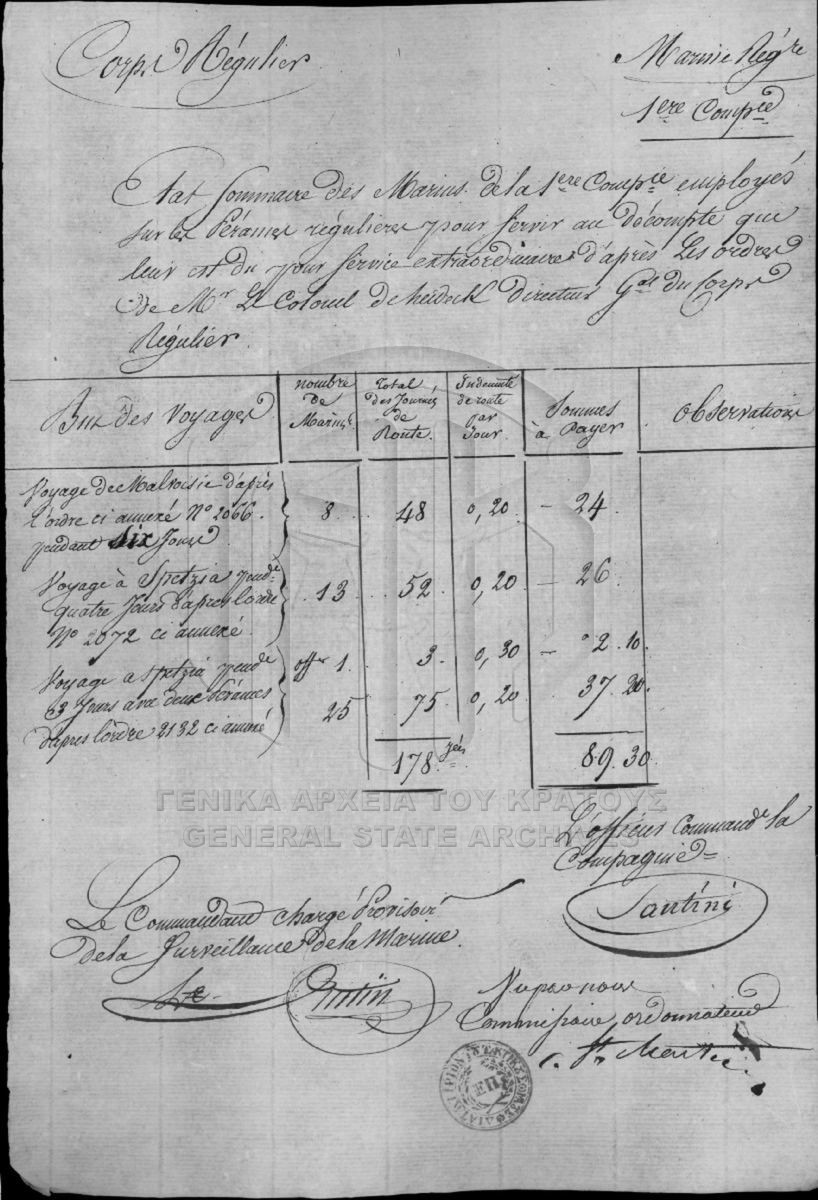 Corps Régulier
Marine Rég.re
1ere Comp.ie
Etat Sommaire des Marins de la 1ere Comp.ie employés
sur les Pérames régulieres pour servir au décompte que
leur est du pour service extraordinaire d'après Les ordres
de Mr Le Colonel de Heideck Directeur G.al du Corps
Régulier.
But des Voyages
nombre de Marins
Total des Journées de Route.
Indemnité de route par Jour.
Sommes à Payer
Observations
Voyage de Malvoisie d'après
l'ordre ci annexé No 2066.
pendant six Jours
8 48 0,20 — 24
Voyage à Spetzia pend.t
quatre Jours d'apres l'ordre
No 2072 ci annexé.
13 52 0,20 — 26
Voyage a Spetzia pend.t
3 Jours avec deux Pérames
d'apres l'ordre 2132 ci annexé
offer 1 3 0,30 — 2.10
25 75 0,20 37.20
178 89.30
ΓΕΝΙΚΑ ΑΡΧΕΙΑ ΤΟΥ ΚΡΑΤΟΥΣ
GENERAL STATE ARCHIVES
L'officier Command.t la
Compagnie
Santini
Le Commandant chargé Provisoir.t
de la Surveillance de la Marine.
Vu par nous
Commissaire ordonnateur